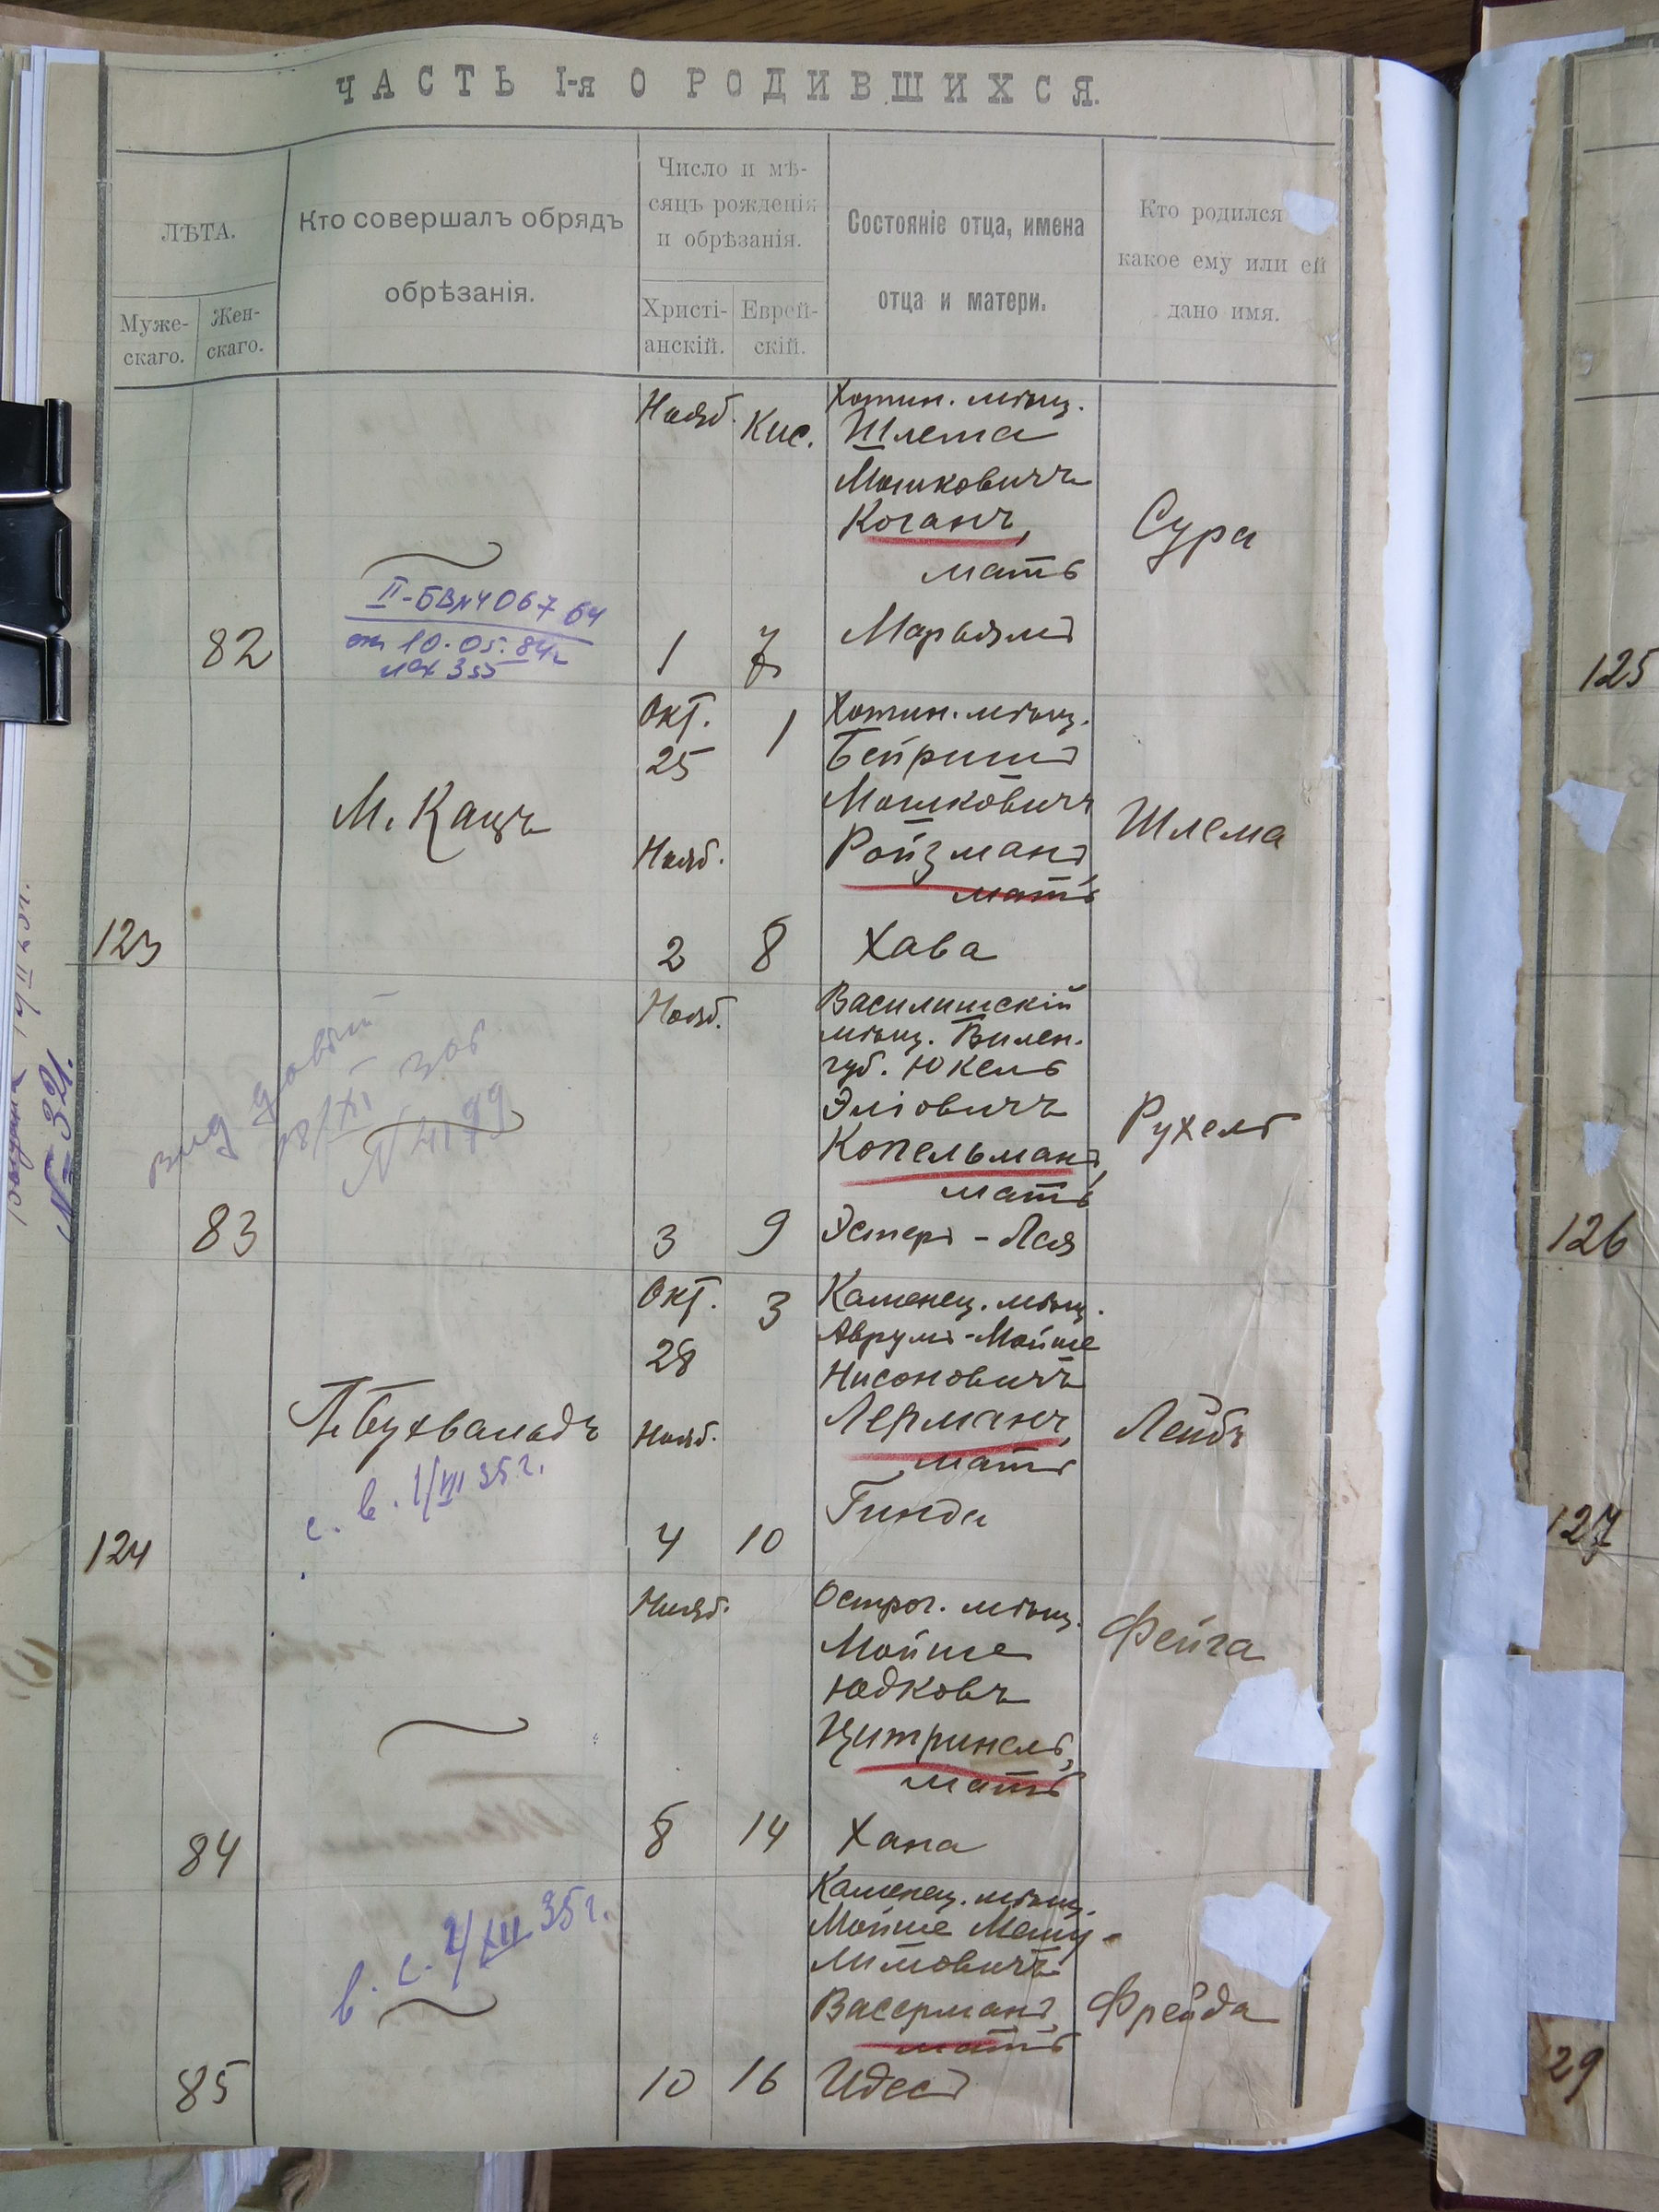 ЧАСТЬ I-я О РОДИВШИХСЯ.
ЛѢТА.
Муже-
скаго.
Жен-
скаго.
Кто совершалъ обрядъ
обрѣзанія.
Число и мѣ-
сяцъ рожденія
и обрѣзанія.
Христі-
анскій.
Еврей-
скій.
Состояніе отца, имена
отца и матери.
Кто родился
какое ему или ей
дано имя.
82
II-БВ№406764
от 10.05.84г
Нояб.
1
Кис.
7
Хотин. мѣщ.
Шлема
Мошковичъ
Коганъ,
мать
Марьямъ
Сура
123
М. Кацъ
Окт.
25
Нояб.
2
1
8
Хотин. мѣщ.
Бейришъ
Мошковичъ
Ройзманъ,
мать
Хава
Шлема
83
выд
№ 4199
Нояб.
3
9
Василишскій
мѣщ. Вилен.
губ. Юкель
Эліовичъ
Копельманъ,
мать
Эстеръ-Лея
Рухель
124
Бухвальдъ
с. в. 1/III 35 г.
Окт.
28
Нояб.
4
3
10
Каменец. мѣщ.
Аврумъ-Мойше
Нисоновичъ
Лерманъ,
мать
Гинда
Лейбъ
84
Нояб.
8
14
Острог. мѣщ.
Мойше
Юдковъ
Цитринель,
мать
Хана
Фейга
85
в. с. 2/XII 35 г.
10
16
Каменец. мѣщ.
Мойше Мешу-
лимовичъ
Васерманъ,
мать
Идесъ
Фрейда
№ 321.
125
126
127
29